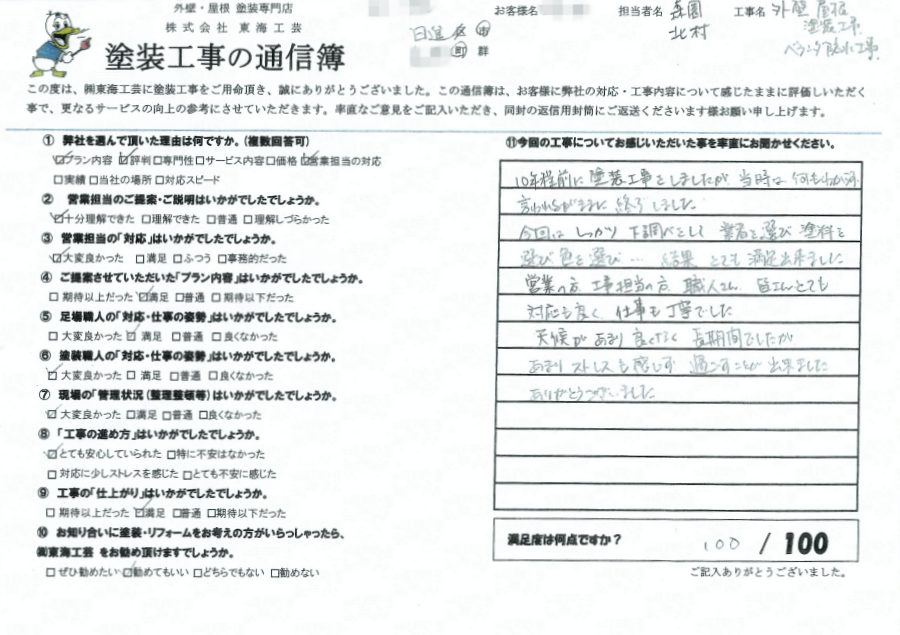 外壁・屋根 塗装専門店
株式会社 東海工芸
塗装工事の通信簿
お客様名
日進 区 市
町 群
担当者名 森園
北村
工事名 外壁 屋根
塗装工事
ベランダ防水工事
この度は、㈱東海工芸に塗装工事をご用命頂き、誠にありがとうございました。この通信簿は、お客様に弊社の対応・工事内容について感じたままに評価しいただく
事で、更なるサービスの向上の参考にさせていただきます。率直なご意見をご記入いただき、同封の返信用封筒にご返送くださいます様お願い申し上げます。
① 弊社を選んで頂いた理由は何ですか。(複数回答可)
☑プラン内容 ☑評判 □専門性 □サービス内容 □価格 ☑営業担当の対応
□実績 □当社の場所 □対応スピード
② 営業担当のご提案・ご説明はいかがでしたでしょうか。
☑十分理解できた □理解できた □普通 □理解しづらかった
③ 営業担当の「対応」はいかがでしたでしょうか。
☑大変良かった □満足 □ふつう □事務的だった
④ ご提案させていただいた「プラン内容」はいかがでしたでしょうか。
□期待以上だった ☑満足 □普通 □期待以下だった
⑤ 足場職人の「対応・仕事の姿勢」はいかがでしたでしょうか。
□大変良かった ☑満足 □普通 □良くなかった
⑥ 塗装職人の「対応・仕事の姿勢」はいかがでしたでしょうか。
☑大変良かった □満足 □普通 □良くなかった
⑦ 現場の「管理状況(整理整頓等)はいかがでしたでしょうか。
☑大変良かった □満足 □普通 □良くなかった
⑧ 「工事の進め方」はいかがでしたでしょうか。
☑とても安心していられた □特に不安はなかった
□対応に少しストレスを感じた □とても不安に感じた
⑨ 工事の「仕上がり」はいかがでしたでしょうか。
□期待以上だった ☑満足 □普通 □期待以下だった
⑩ お知り合いに塗装・リフォームをお考えの方がいらっしゃったら、
㈱東海工芸 をお勧め頂けますでしょうか。
□ぜひ勧めたい ☑勧めてもいい □どちらでもない □勧めない
⑪今回の工事についてお感じいただいた事を率直にお聞かせください。
10年程前に塗装工事をしましたが、当時は何もわからず
言われるがままに終了しました
今回は しっかり下調べをして 業者を選び 塗料を
選び 色を選び… 結果 とても満足出来ました
営業の方、工事担当の方、職人さん、皆さんとても
対応も良く、仕事も丁寧でした
天候があまり良くなく 長期間でしたが
あまりストレスも感じず 過ごすことが出来ました
ありがとうございました
満足度は何点ですか? 100 / 100
ご記入ありがとうございました。